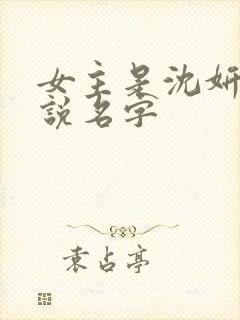 女主是沈妍
說名字
袁占亭